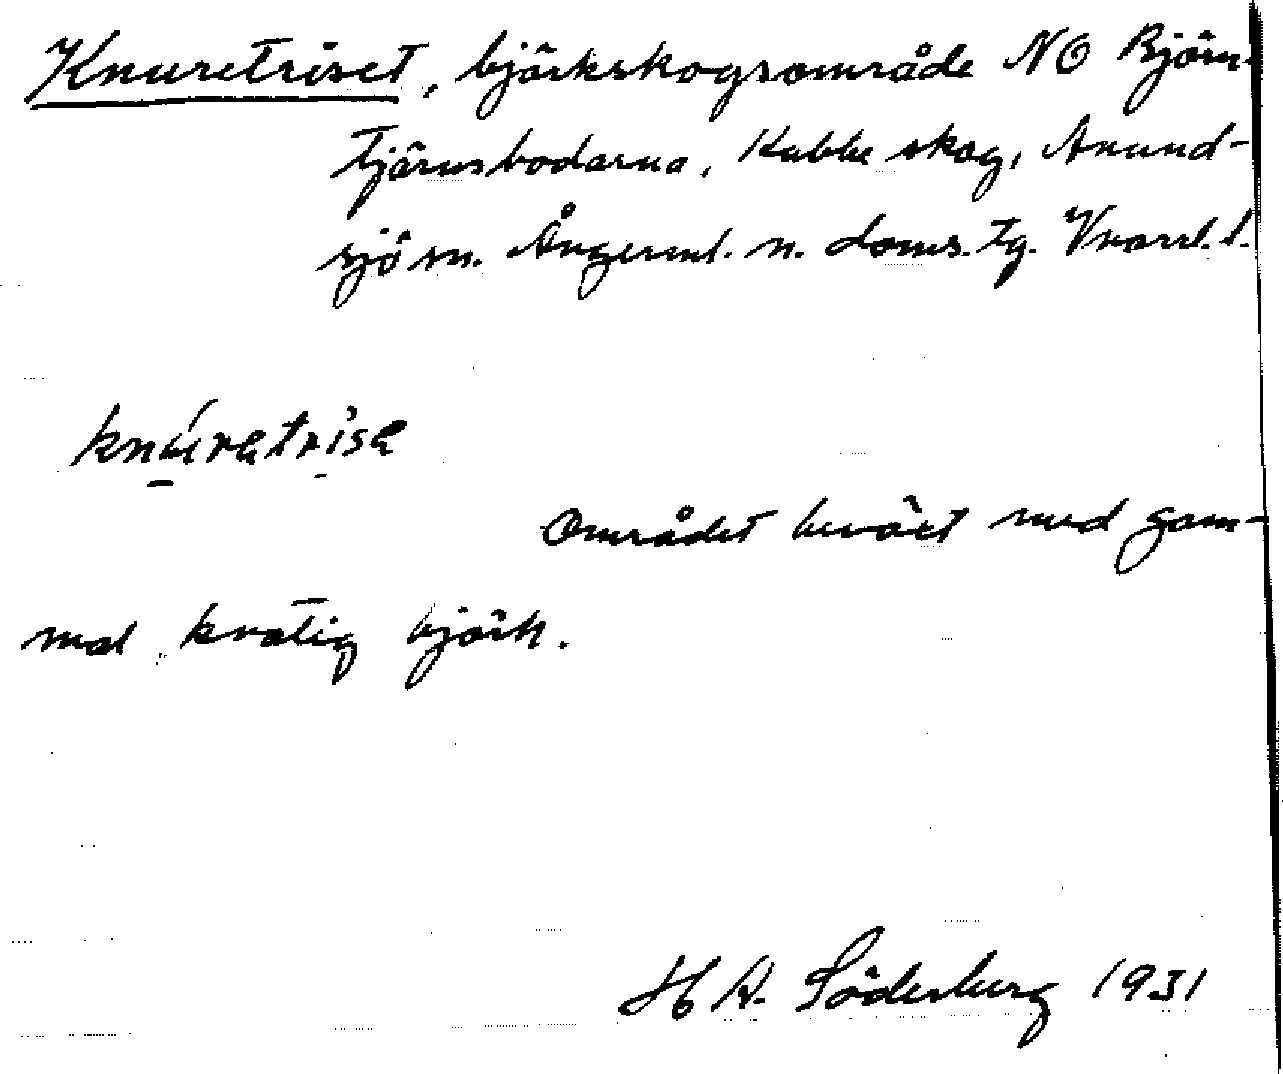 Knuretriset, björkskogsområde NO Björn-
tjärnsbodarna, Kubbe skog, Anund-
sjö sn. Ångerml. n. doms. tg. Vnorrl. l.
knúratrise
Området beväxt med gam-
mal kvatig björk.
H A. Söderberg 1931